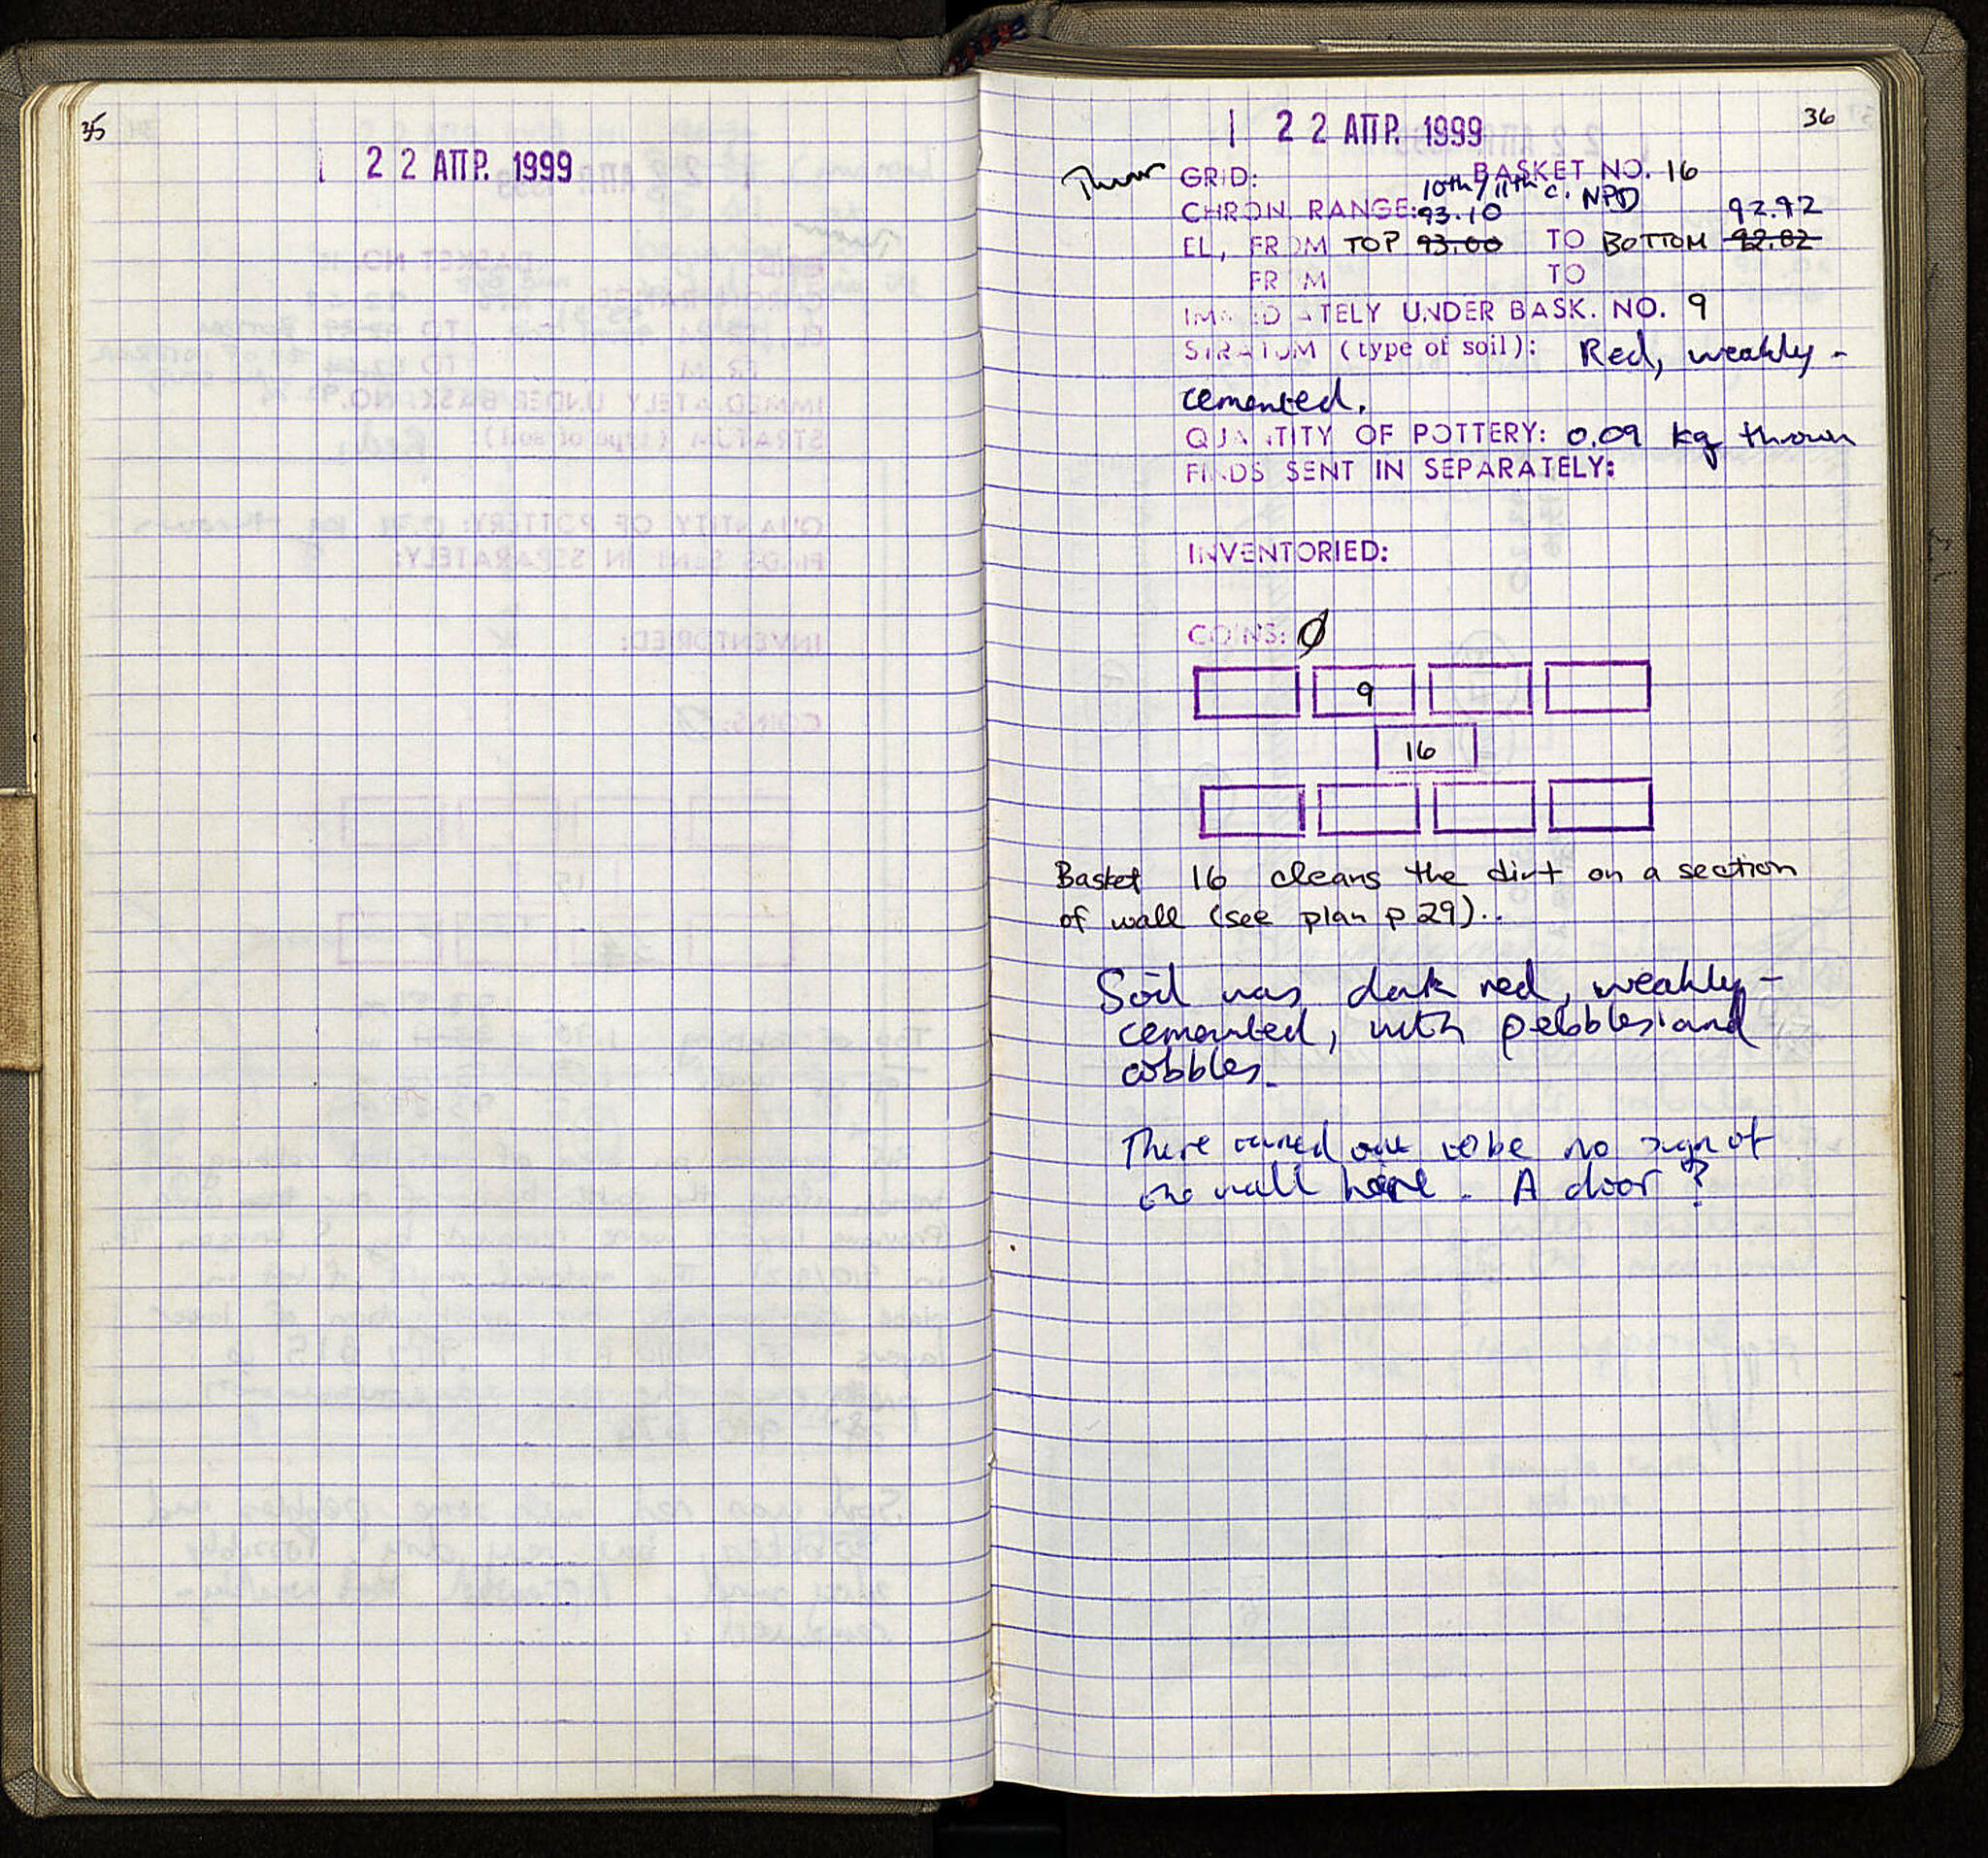 35
22 ΑΠΡ. 1999
36
22 ΑΠΡ. 1999
Throw GRID: BASKET NO. 16
10th/11th c. NPD
CHRON. RANGE:
93.10 92.92
EL, FROM TOP 93.00 TO BOTTOM 92.82
FROM TO
IMMEDIATELY UNDER BASK. NO. 9
STRATUM (type of soil): Red, weakly-
cemented.
QUANTITY OF POTTERY: 0.09 kg thrown
FINDS SENT IN SEPARATELY:
INVENTORIED:
COINS: Ø
9
16
Basket 16 cleans the dirt on a section
of wall (see plan p 29)..
Soil was dark red, weakly-
cemented, with pebbles and
cobbles.
There turned out to be no sign of
the wall here. A door?